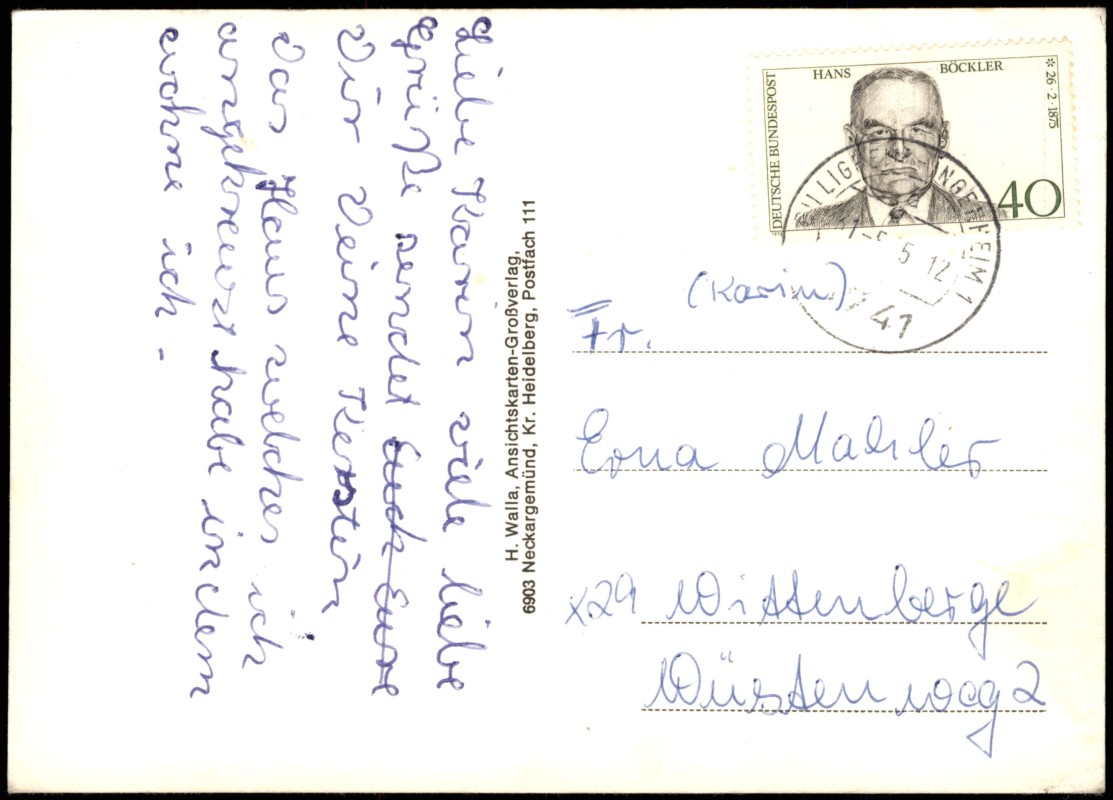 Liebe Karin viele liebe
Grüße sendet Euch Eure
Dir Deine Kerstin
Das Haus welches ich
angekreuzt habe in dem
wohne ich -
H. Walla, Ansichtskarten-Großverlag,
6903 Neckargemünd, Kr. Heidelberg, Postfach 111
DEUTSCHE BUNDESPOST
HANS BÖCKLER
* 26·2·1875
40
5 12
741
(Karin)
Fr.
Erna Mahler
x29 Wittenberge
Wüsten weg 2